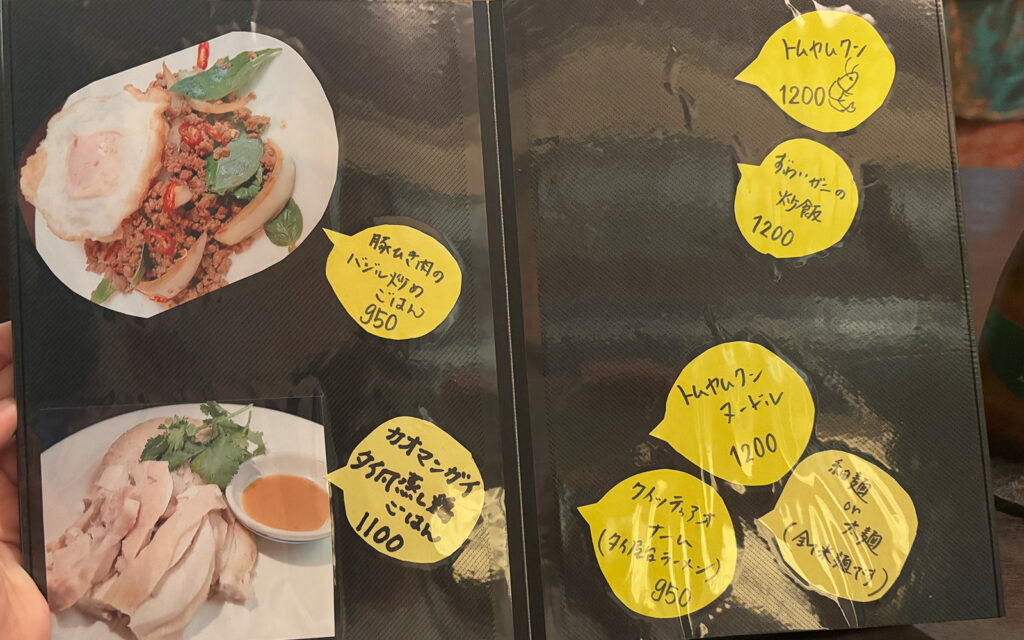 豚ひき肉の
バジル炒め
ごはん
950
カオマンガイ
タイ風蒸し鶏
ごはん
1100
トムヤムクン
1200
ずわいガニの
炒飯
1200
トムヤムクン
ヌードル
1200
クイッティアオ
ナーム
(タイ屋台ラーメン)
950
細麺
or
太麺
(全て米麺です)